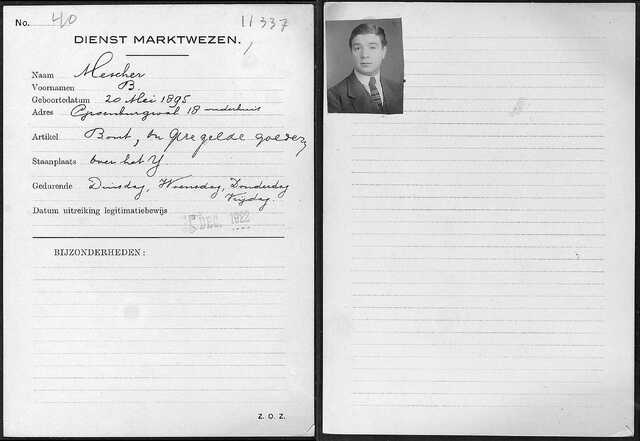 No. 40 11337
DIENST MARKTWEZEN.
Naam Mescher
Voornamen B.
Geboortedatum 20 Mei 1895
Adres Groenburgwal 18 onderhuis
Artikel Bont, en geregelde goederen
Staanplaats over het Y
Gedurende Dinsdag, Woensdag, Donderdag
Vrijdag.
Datum uitreiking legitimatiebewijs 5 DEC. 1922
BIJZONDERHEDEN:
Z. O. Z.